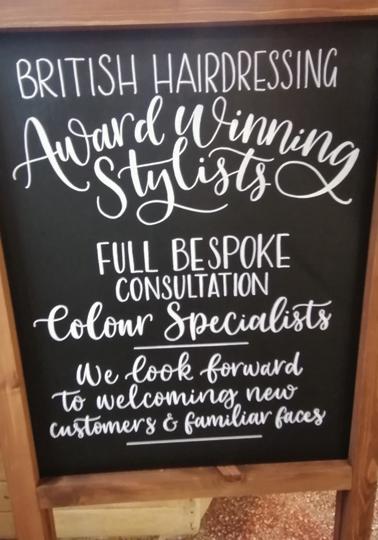 BRITISH HAIRDRESSING
Award Winning
Stylists
FULL BESPOKE
CONSULTATION
Colour Specialists
We look forward
to welcoming new
customers & familiar faces